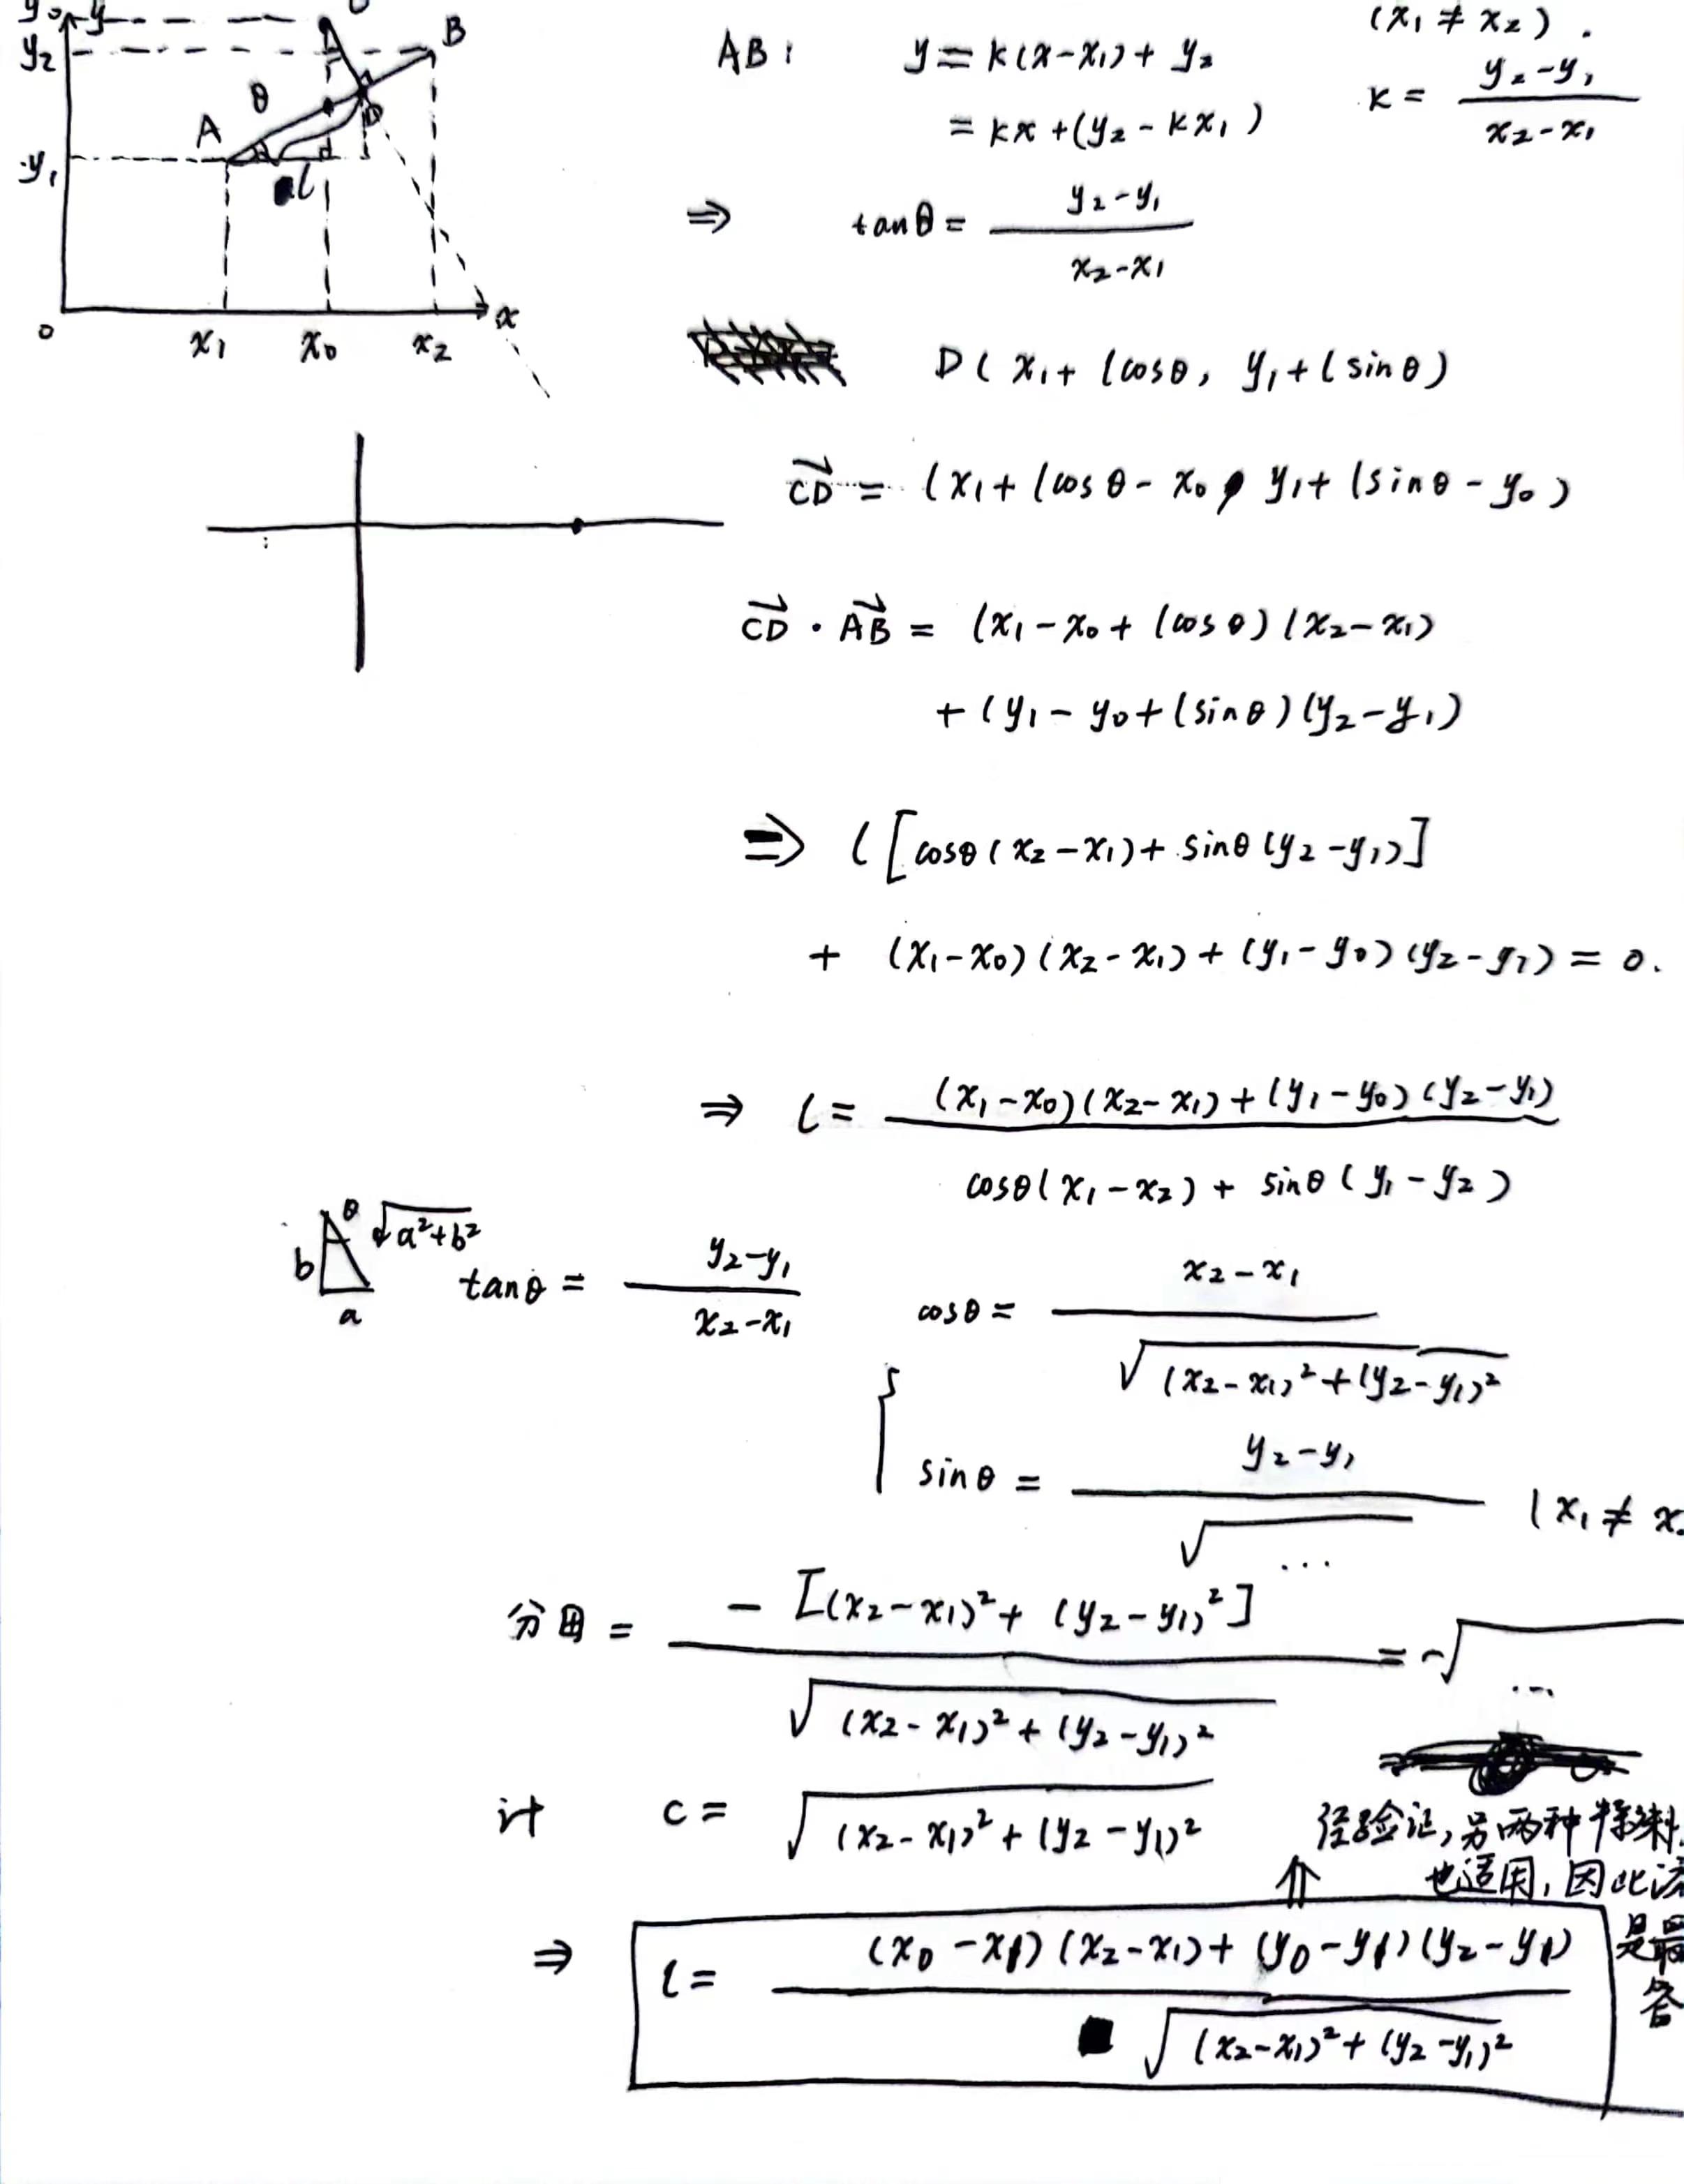 y₀ y C
y₂ B
θ
A D
y₁
l
0 x₁ x₀ x₂ x
(x₁ ≠ x₂).
AB: y = k(x-x₁) + y₂
= kx + (y₂ - kx₁)
k = (y₂-y₁)/(x₂-x₁)
⇒ tanθ = (y₂-y₁)/(x₂-x₁)
D( x₁ + lcosθ, y₁ + lsinθ)
CD→ = (x₁ + lcosθ - x₀, y₁ + lsinθ - y₀)
CD→ · AB→ = (x₁ - x₀ + lcosθ)(x₂ - x₁)
+ (y₁ - y₀ + lsinθ)(y₂ - y₁)
⇒ l[cosθ(x₂ - x₁) + sinθ(y₂ - y₁)]
+ (x₁ - x₀)(x₂ - x₁) + (y₁ - y₀)(y₂ - y₁) = 0.
⇒ l = ((x₁ - x₀)(x₂ - x₁) + (y₁ - y₀)(y₂ - y₁))/(cosθ(x₁ - x₂) + sinθ(y₁ - y₂))
θ √(a²+b²)
b
a
tanθ = (y₂-y₁)/(x₂-x₁)
cosθ = (x₂-x₁)/√((x₂-x₁)²+(y₂-y₁)²)
sinθ = (y₂-y₁)/√... (x₁ ≠ x
分母 = -[(x₂-x₁)² + (y₂-y₁)²]/√((x₂-x₁)² + (y₂-y₁)²) = -√...
计 c = √((x₂-x₁)² + (y₂-y₁)²)
经验证,另两种
⇑ 也适用,因此
⇒ l = ((x₀ - x₁)(x₂-x₁) + (y₀ - y₁)(y₂-y₁))/√((x₂-x₁)² + (y₂-y₁)²)
是最
答